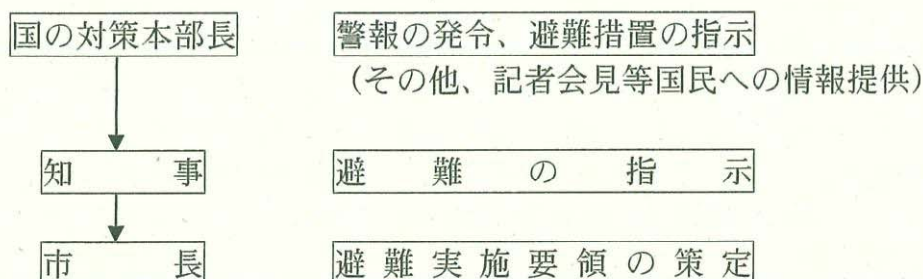 国の対策本部長 警報の発令、避難措置の指示
（その他、記者会見等国民への情報提供）
知事 避難の指示
市長 避難実施要領の策定